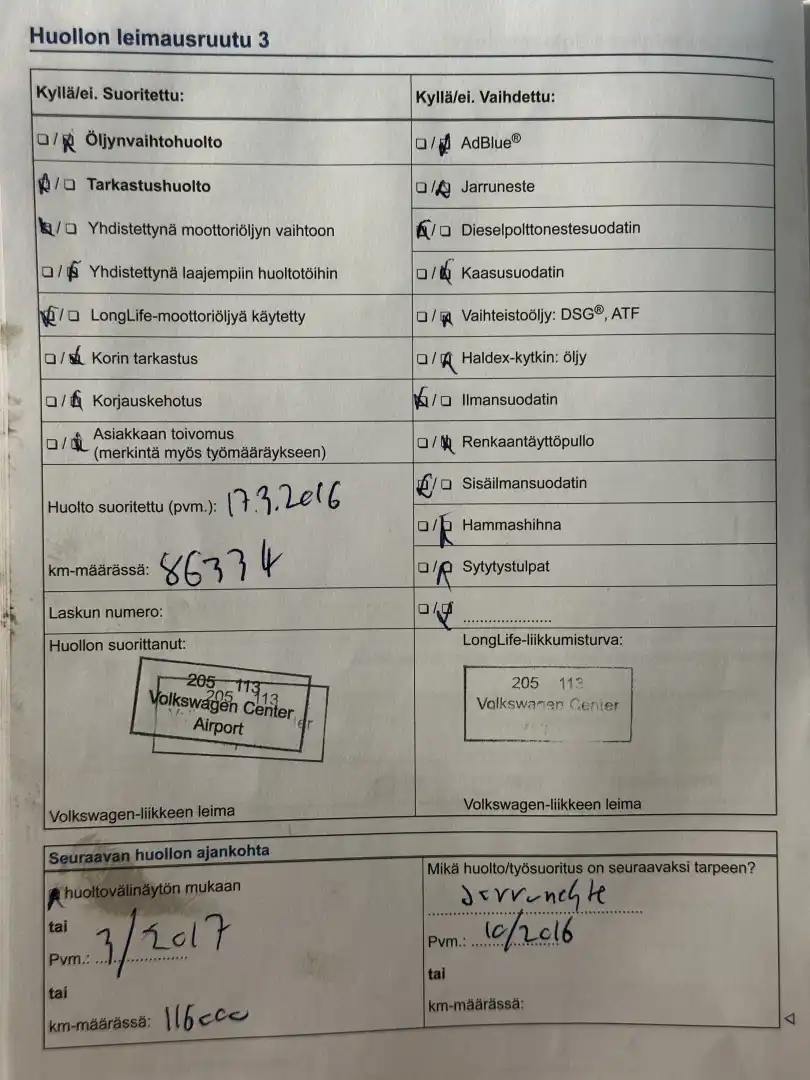 Huollon leimausruutu 3
Kyllä/ei. Suoritettu:
Öljynvaihtohuolto
Tarkastushuolto
Yhdistettynä moottoriöljyn vaihtoon
Yhdistettynä laajempiin huoltotöihin
LongLife-moottoriöljyä käytetty
Korin tarkastus
Korjauskehotus
Asiakkaan toivomus
(merkintä myös työmääräykseen)
Huolto suoritettu (pvm.): 17.3.2016
km-määrässä: 86334
Laskun numero:
Huollon suorittanut:
205 113
Volkswagen Center
Airport
205 113
Volkswagen-liikkeen leima
Kyllä/ei. Vaihdettu:
AdBlue®
Jarruneste
Dieselpolttonestesuodatin
Kaasusuodatin
Vaihteistoöljy: DSG®, ATF
Haldex-kytkin: öljy
Ilmansuodatin
Renkaantäyttöpullo
Sisäilmansuodatin
Hammashihna
Sytytystulpat
LongLife-liikkumisturva:
205 113
Volkswagen Center
Volkswagen-liikkeen leima
Seuraavan huollon ajankohta
huoltovälinäytön mukaan
tai
Pvm.: 3/2017
tai
km-määrässä: 116000
Mikä huolto/työsuoritus on seuraavaksi tarpeen?
Jarruneste
Pvm.: 10/2016
tai
km-määrässä: